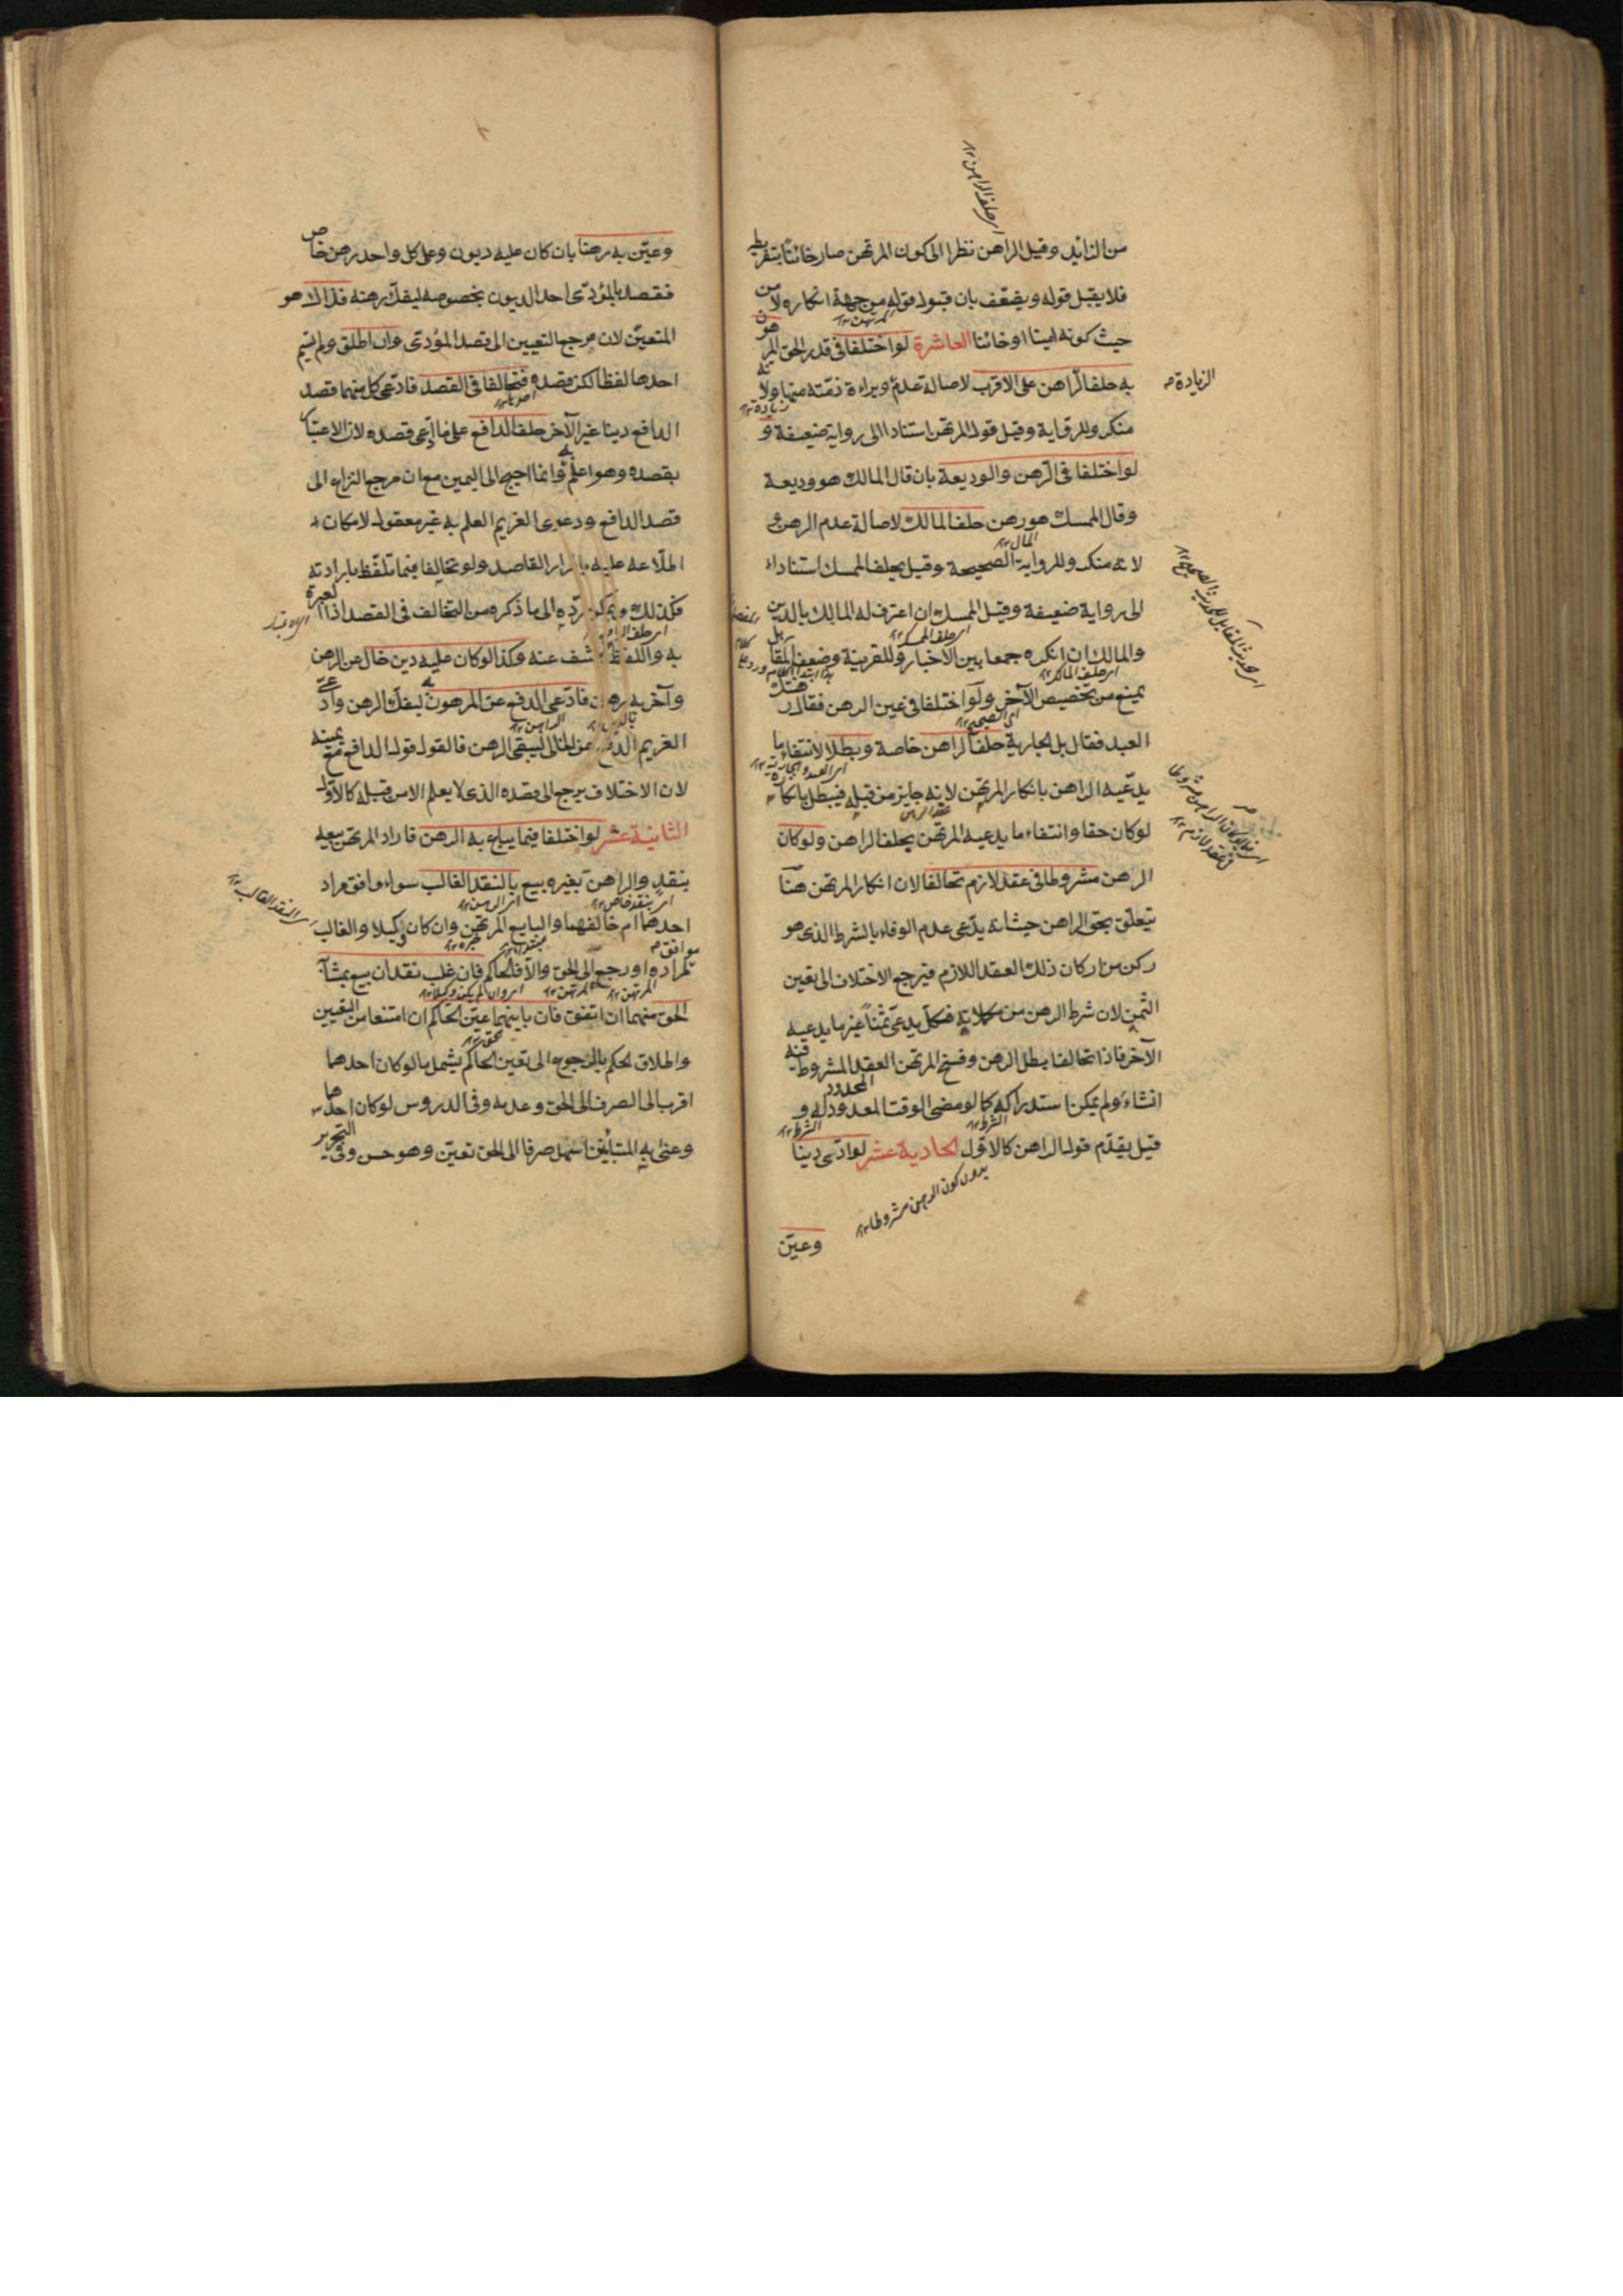 من الزائد وقيل الراهن نظرا الى كون المرتهن صار خائنا بتفريطه
فلا يقبل قوله ويضعف بان قبول قوله من جهة انكاره لا من
حيث كونه امينا او خائنا العاشرة لو اختلفا فى قدر الحق المرهون
به حلف الراهن على الاقرب لاصالة عدم الزيادة وبراءة ذمته منها ولانه
منكر وللرواية وقيل قول المرتهن استنادا الى رواية ضعيفة و
لو اختلفا فى الرهن والوديعة بان قال المالك هو وديعة
وقال الممسك هو رهن حلف المالك لاصالة عدم الرهن و
لانه منكر وللرواية الصحيحة وقيل يحلف الممسك استنادا
الى رواية ضعيفة وقيل الممسك ان اعترف له المالك بالدين
والمالك ان انكره جمعا بين الاخبار وللقرينة وضعف المقابل
يمنع من تخصيص الآخر ولو اختلفا فى عين الرهن فقال رهنتك
العبد فقال بل الجارية حلف الراهن خاصة وبطلا لانتفاء ما
يدعيه الراهن بانكار المرتهن لانه جايز من قبله فيبطل بانكاره
لو كان حقا وانتفاء ما يدعيه المرتهن بحلف الراهن ولو كان
الرهن مشروطا فى عقد لازم تحالفا لان انكار المرتهن هنا
يتعلق بحق الراهن حيث انه يدعى عدم الوفاء بالشرط الذى هو
ركن من اركان ذلك العقد اللازم فيرجع الاختلاف الى تعين
الثمن لان شرط الرهن من مكملاته فكل يدعى ثمنا غير ما يدعيه
الآخر فاذا تحالفا بطل الرهن وفسخ المرتهن العقد المشروط فيه
ان شاء ولم يمكن استدراكه كما لو مضى الوقت المحدود له و
قيل يقدم قول الراهن كالاول الحادية عشر لو ادى دينا
بدون كون الرهن مشروطا ١٢
وعين
وعين به رهنا بان كان عليه ديون وعلى كل واحد رهن خاص
فقصد بالمؤدى احد الديون بخصوصه ليفك رهنه فذاك هو
المتعين لان مرجع التعيين الى قصد المؤدى وان اطلق ولم يسم
احدها لفظا لكن قصده فتخالفا فى القصد فادعى كل منهما قصد
الدافع دينا غير الآخر حلف الدافع على ما ادعى قصده لان الاعتبار
بقصده وهو اعلم به وانما احتيج الى اليمين مع ان مرجع النزاع الى
قصد الدافع ودعوى الغريم العلم به غير معقول لامكان
اطلاعه عليه باقرار القاصد ولو تخالفا فيما تلفظ بارادته
فكذلك ويمكن رده الى ما ذكر من التخالف فى القصد اذ العبرة
به واللفظ كاشف عنه وكذا لو كان عليه دين خال عن الرهن
وآخر به رهن فادعى الدفع عن المرهون به ليفك الرهن وادعى
الغريم الدفع عن الخالى ليبقى الرهن فالقول قول الدافع مع يمينه
لان الاختلاف يرجع الى قصده الذى لا يعلم الا من قبله كالاول
الثانية عشر لو اختلفا فيما يباع به الرهن فاراد المرتهن بيعه
بنقد والراهن بغيره بيع بالنقد الغالب سواء وافق مراد
احدهما ام خالفهما والبايع المرتهن وان كان وكيلا والغالب
موافق لمراده او رجع الى الحق والا فالحاكم فان غلب نقدان بيع بمشابه
الحق منهما ان اتفق فان بايناهما عين الحاكم ان امتنعا من التعيين
واطلاق الحكم بالرجوع الى تعيين الحاكم يشمل ما لو كان احدهما
اقرب الى الصرف الى الحق وعدمه وفى الدروس لو كان احدهما
وعنى به المتباينين اسهل صرفا الى الحق تعين وهو حسن وفى التحرير